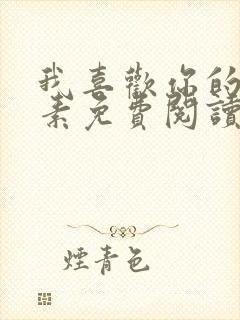 我喜歡你的
素免費閱讀
煙青色